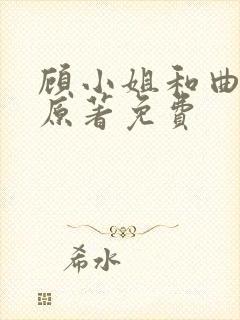 顾小姐和曲
原著免费
希水